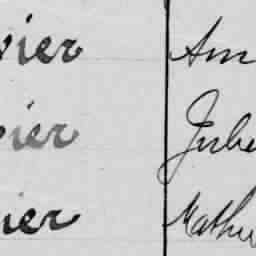 vier Am
vier Jube
vier Mathu